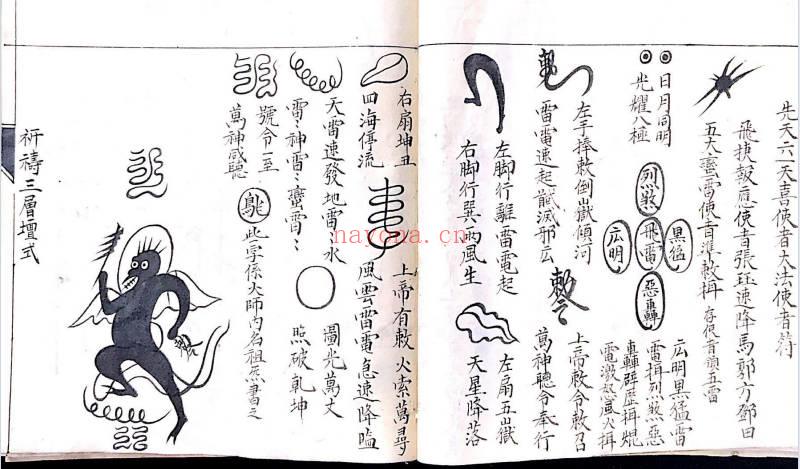 先天六一天喜使者大法使者符
飛捷報應使者張珏速降馬郭方鄧田
五大蠻雷使者準敕揖
存使者領五雷
日月同明
光耀八極
烈煞
広明
飛雷
黒猛
惡轟
広明黒猛雷
雷揖烈煞惡
轟轟霹歷揖焜
電激怒風火揖
左手捧敕倒嶽傾河
上帝敕令敕召
雷雷速起
滅邪広
敕令
萬神聽令奉行
左脚行離雷電起
右脚行巽雨風生
左扇五嶽
天星降落
右扇坤丑
四海停流
上帝有敕火索萬尋
風雲雷雷急速降臨
天雷速發地雷水
雷〻神雷〻蠻雷〻
圓光萬丈
照破乾坤
號令一至
萬神咸聽
此字係火師内名祖炁書之
祈禱三層壇式
nayona.cn